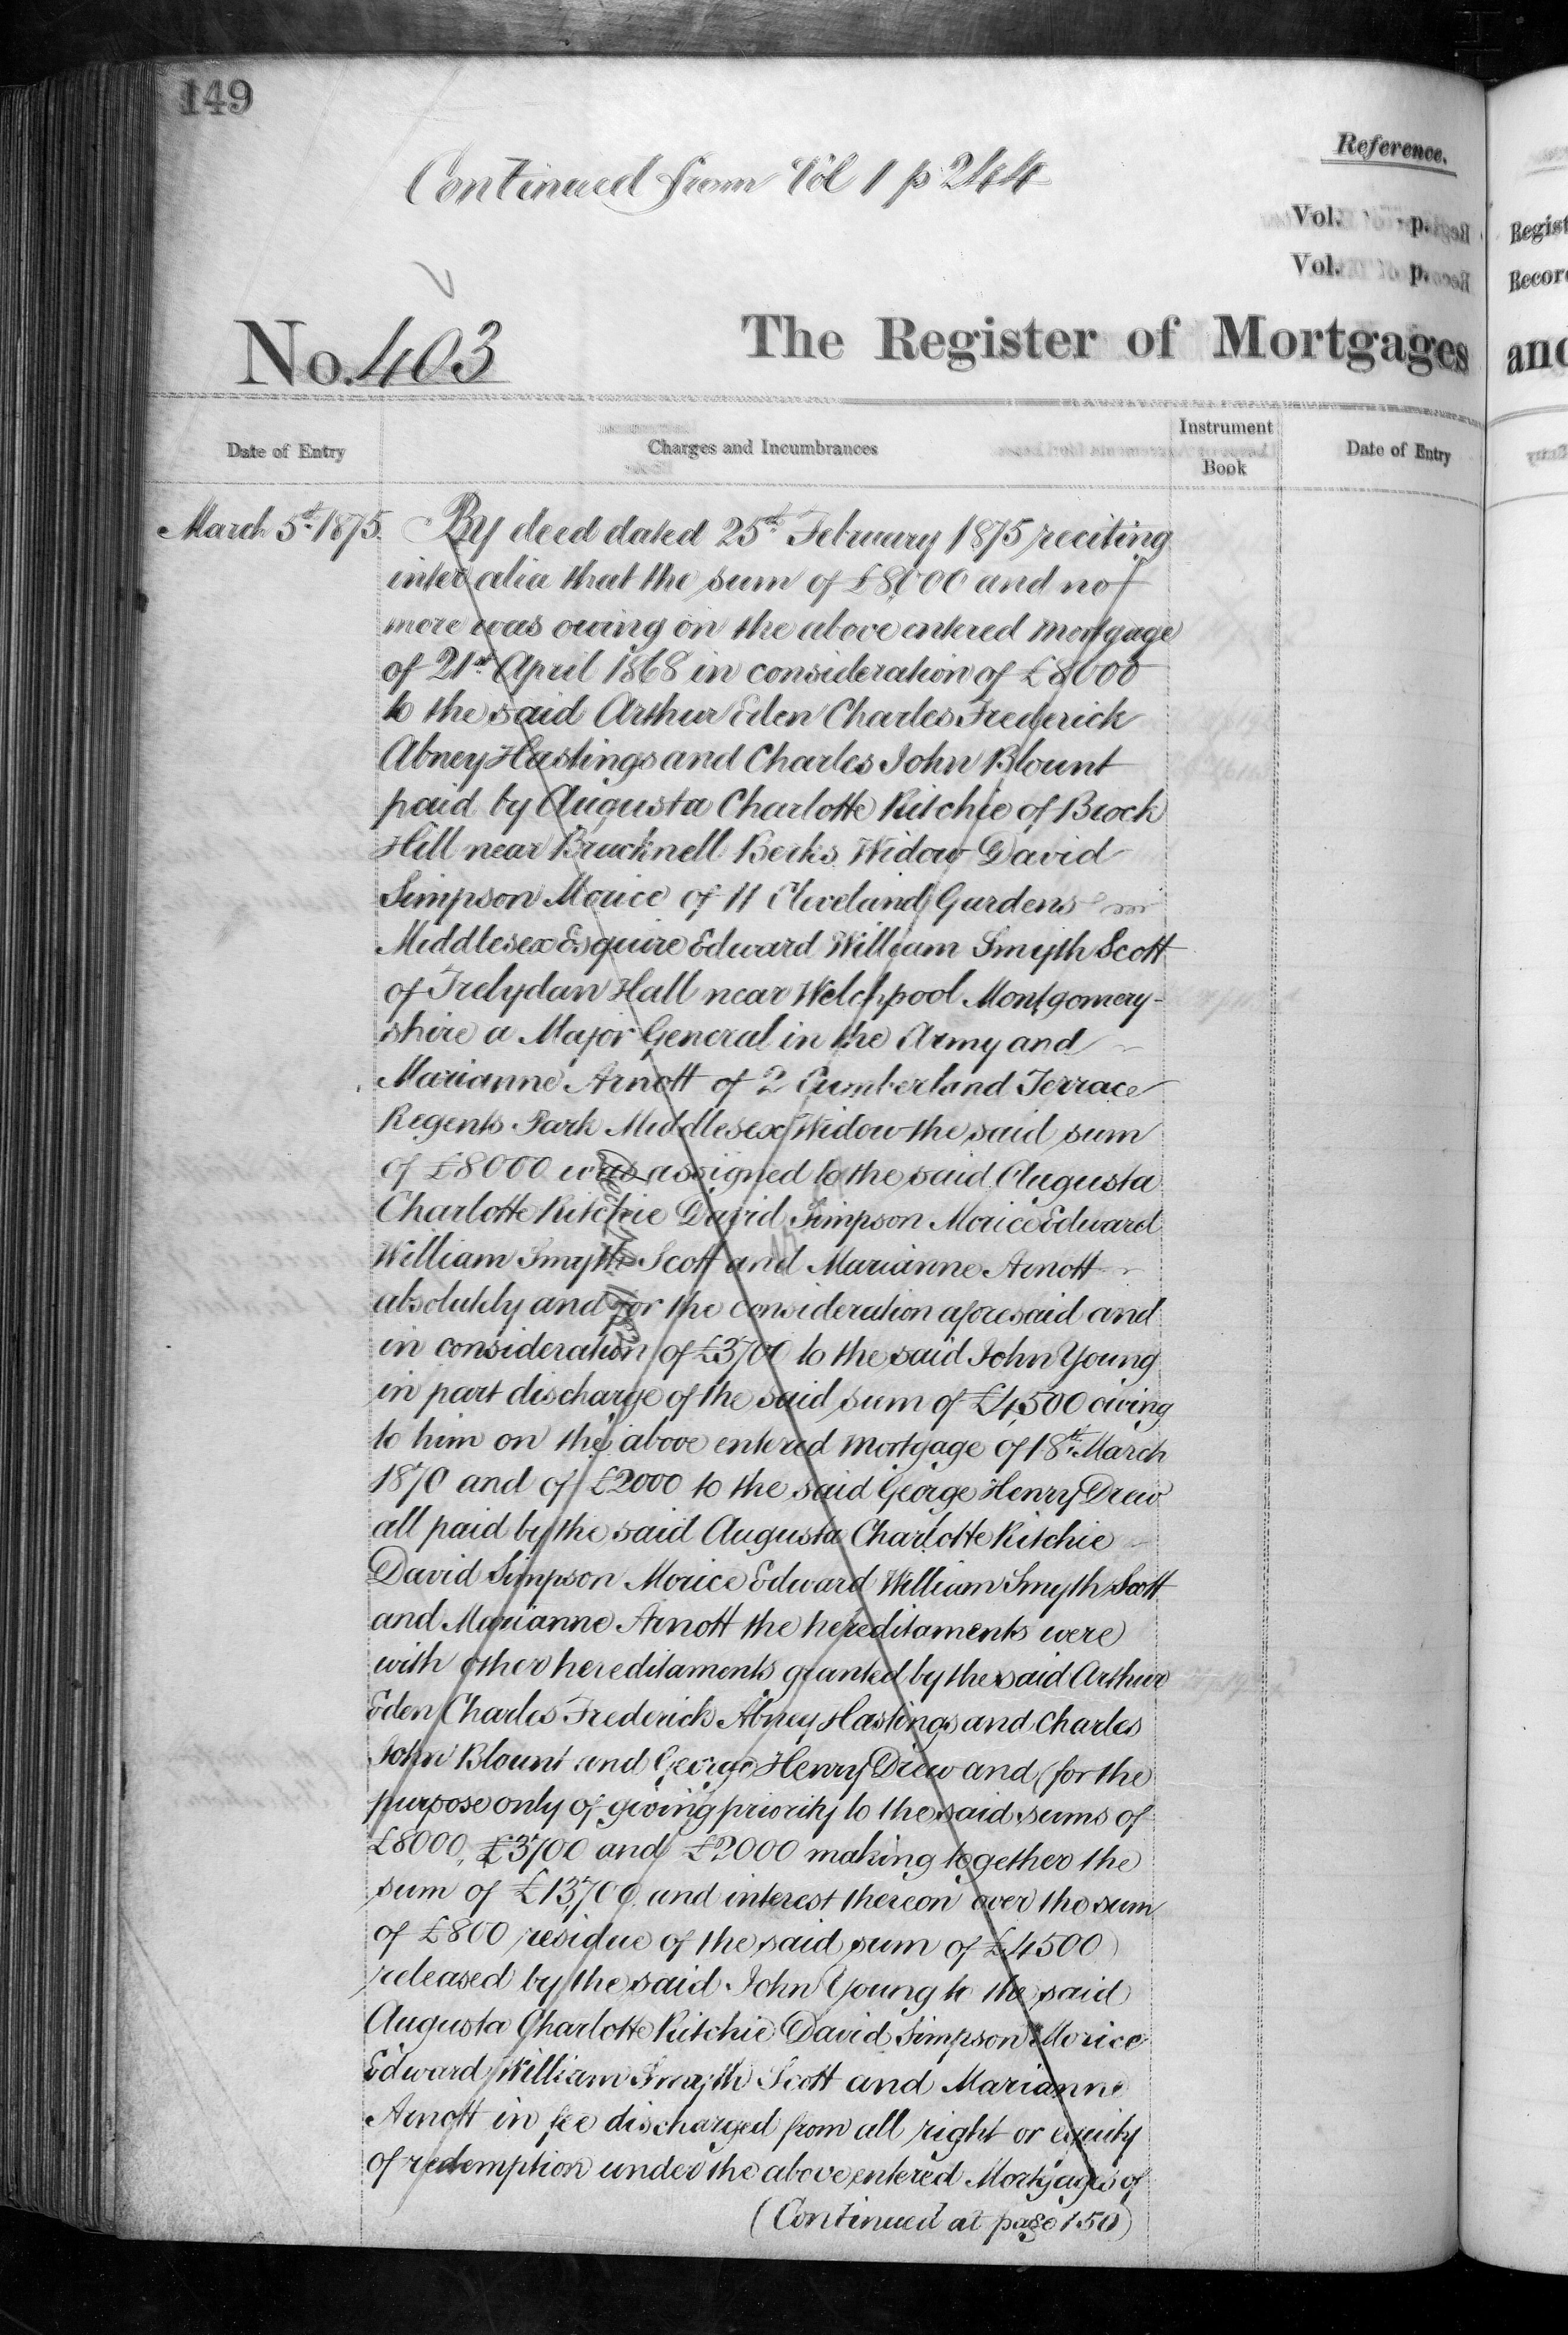 149
Continued from Vol 1 p 244
Reference.
Vol. p.
Vol. p.
No. 403
The Register of Mortgages
Date of Entry
Charges and Incumbrances
Instrument
Book
Date of Entry
March 5th 1875.
By deed dated 25th February 1875 reciting
inter alia that the sum of £8000 and no
more was owing on the above entered Mortgage
of 21st April 1868 in consideration of £8000
to the said Arthur Eden Charles Frederick
Abney Hastings and Charles John Blount
paid by Augusta Charlotte Ritchie of Brock
Hill near Bracknell Berks Widow David
Simpson Morice of 11 Cleveland Gardens
Middlesex Esquire Edward William Smyth Scott
of Trelydan Hall near Welchpool Montgomery-
shire a Major General in the Army and
Marianne Arnott of 2 Cumberland Terrace
Regents Park Middlesex Widow the said sum
of £8000 was assigned to the said Augusta
Charlotte Ritchie David Simpson Morice Edward
William Smyth Scott and Marianne Arnott
absolutely and for the consideration aforesaid and
in consideration of £3700 to the said John Young
in part discharge of the said sum of £4,500 owing
to him on the above entered Mortgage of 18th March
1870 and of £2000 to the said George Henry Drew
all paid by the said Augusta Charlotte Ritchie
David Simpson Morice Edward William Smyth Scott
and Marianne Arnott the hereditaments were
with other hereditaments granted by the said Arthur
Eden Charles Frederick Abney Hastings and Charles
John Blount and George Henry Drew and (for the
purpose only of giving priority to the said sums of
£8000, £3700 and £2000 making together the
sum of £13,700 and interest thereon over the sum
of £800 residue of the said sum of £4500)
released by the said John Young to the said
Augusta Charlotte Ritchie David Simpson Morice
Edward William Smyth Scott and Marianne
Arnott in fee discharged from all right or equity
of redemption under the above entered Mortgages of
(Continued at page 150)
Regist
Record
and